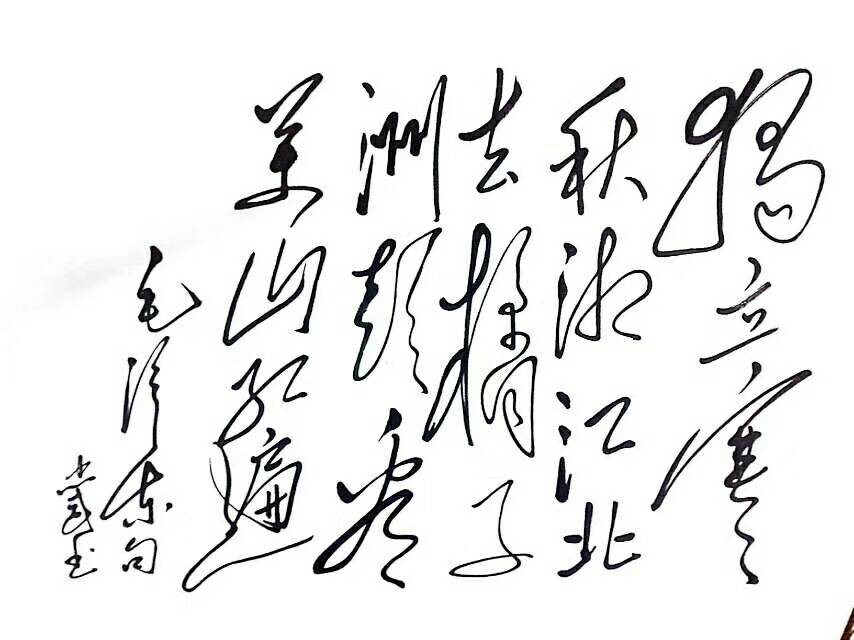 獨立寒
秋湘江北
去橘子
洲頭看
萬山红遍
毛泽东句